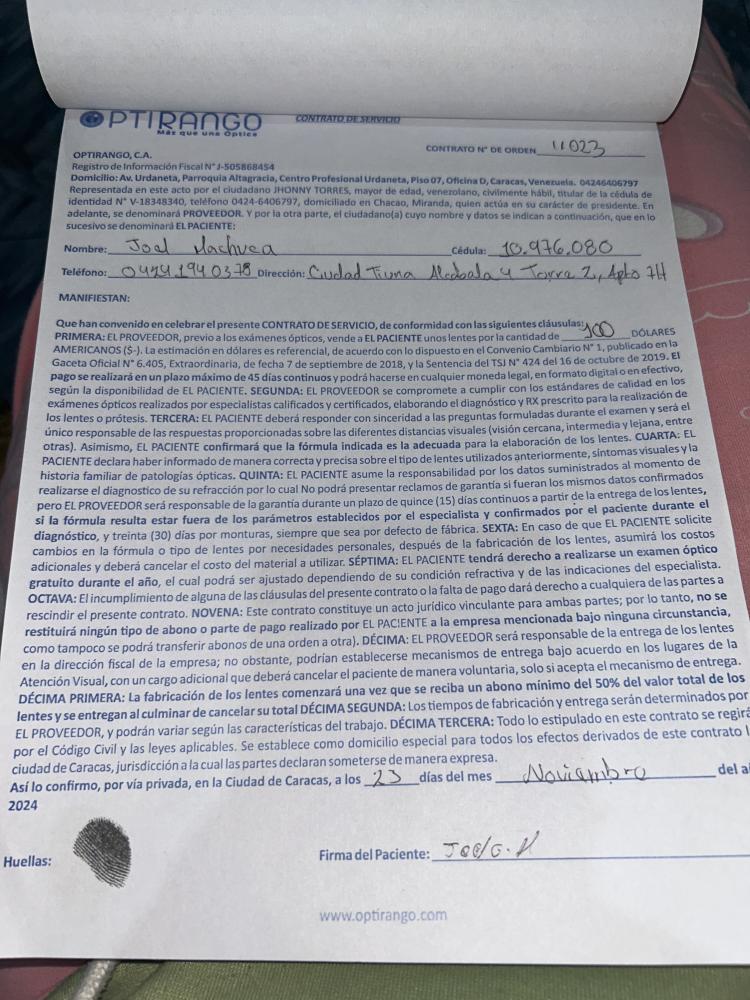 OPTIRANGO
Más que una Óptica
CONTRATO DE SERVICIO
CONTRATO N° DE ORDEN 11023
OPTIRANGO, C.A.
Registro de Información Fiscal N° J-505868454
Domicilio: Av. Urdaneta, Parroquia Altagracia, Centro Profesional Urdaneta, Piso 07, Oficina D, Caracas, Venezuela. 04246406797
Representada en este acto por el ciudadano JHONNY TORRES, mayor de edad, venezolano, civilmente hábil, titular de la cédula de
identidad N° V-18348340, teléfono 0424-6406797, domiciliado en Chacao, Miranda, quien actúa en su carácter de presidente. En
adelante, se denominará PROVEEDOR. Y por la otra parte, el ciudadano(a) cuyo nombre y datos se indican a continuación, que en lo
sucesivo se denominará EL PACIENTE:
Nombre: Joel Cédula: 10.976.080
Teléfono: 0424 194 0378 Dirección: Ciudad Tiuna Alcabala 4 Torre 2, Apto 7H
MANIFIESTAN:
Que han convenido en celebrar el presente CONTRATO DE SERVICIO, de conformidad con las siguientes cláusulas:
PRIMERA: EL PROVEEDOR, previo a los exámenes ópticos, vende a EL PACIENTE unos lentes por la cantidad de 100 DÓLARES
AMERICANOS ($-). La estimación en dólares es referencial, de acuerdo con lo dispuesto en el Convenio Cambiario N° 1, publicado en la
Gaceta Oficial N° 6.405, Extraordinaria, de fecha 7 de septiembre de 2018, y la Sentencia del TSJ N° 424 del 16 de octubre de 2019. El
pago se realizará en un plazo máximo de 45 días continuos y podrá hacerse en cualquier moneda legal, en formato digital o en efectivo,
según la disponibilidad de EL PACIENTE. SEGUNDA: EL PROVEEDOR se compromete a cumplir con los estándares de calidad en los
exámenes ópticos realizados por especialistas calificados y certificados, elaborando el diagnóstico y RX prescrito para la realización de
los lentes o prótesis. TERCERA: EL PACIENTE deberá responder con sinceridad a las preguntas formuladas durante el examen y será el
único responsable de las respuestas proporcionadas sobre las diferentes distancias visuales (visión cercana, intermedia y lejana, entre
otras). Asimismo, EL PACIENTE confirmará que la fórmula indicada es la adecuada para la elaboración de los lentes. CUARTA: EL
PACIENTE declara haber informado de manera correcta y precisa sobre el tipo de lentes utilizados anteriormente, síntomas visuales y la
historia familiar de patologías ópticas. QUINTA: EL PACIENTE asume la responsabilidad por los datos suministrados al momento de
realizarse el diagnostico de su refracción por lo cual No podrá presentar reclamos de garantía si fueran los mismos datos confirmados
pero EL PROVEEDOR será responsable de la garantía durante un plazo de quince (15) días continuos a partir de la entrega de los lentes,
si la fórmula resulta estar fuera de los parámetros establecidos por el especialista y confirmados por el paciente durante el
diagnóstico, y treinta (30) días por monturas, siempre que sea por defecto de fábrica. SEXTA: En caso de que EL PACIENTE solicite
cambios en la fórmula o tipo de lentes por necesidades personales, después de la fabricación de los lentes, asumirá los costos
adicionales y deberá cancelar el costo del material a utilizar. SÉPTIMA: EL PACIENTE tendrá derecho a realizarse un examen óptico
gratuito durante el año, el cual podrá ser ajustado dependiendo de su condición refractiva y de las indicaciones del especialista.
OCTAVA: El incumplimiento de alguna de las cláusulas del presente contrato o la falta de pago dará derecho a cualquiera de las partes a
rescindir el presente contrato. NOVENA: Este contrato constituye un acto jurídico vinculante para ambas partes; por lo tanto, no se
restituirá ningún tipo de abono o parte de pago realizado por EL PACIENTE a la empresa mencionada bajo ninguna circunstancia,
como tampoco se podrá transferir abonos de una orden a otra). DÉCIMA: EL PROVEEDOR será responsable de la entrega de los lentes
en la dirección fiscal de la empresa; no obstante, podrían establecerse mecanismos de entrega bajo acuerdo en los lugares de la
Atención Visual, con un cargo adicional que deberá cancelar el paciente de manera voluntaria, solo si acepta el mecanismo de entrega.
DÉCIMA PRIMERA: La fabricación de los lentes comenzará una vez que se reciba un abono mínimo del 50% del valor total de los
lentes y se entregan al culminar de cancelar su total DÉCIMA SEGUNDA: Los tiempos de fabricación y entrega serán determinados por
EL PROVEEDOR, y podrán variar según las características del trabajo. DÉCIMA TERCERA: Todo lo estipulado en este contrato se regirá
por el Código Civil y las leyes aplicables. Se establece como domicilio especial para todos los efectos derivados de este contrato l
ciudad de Caracas, jurisdicción a la cual las partes declaran someterse de manera expresa.
Así lo confirmo, por vía privada, en la Ciudad de Caracas, a los 23 días del mes Noviembre del a
2024
Huellas:
Firma del Paciente:
www.optirango.com